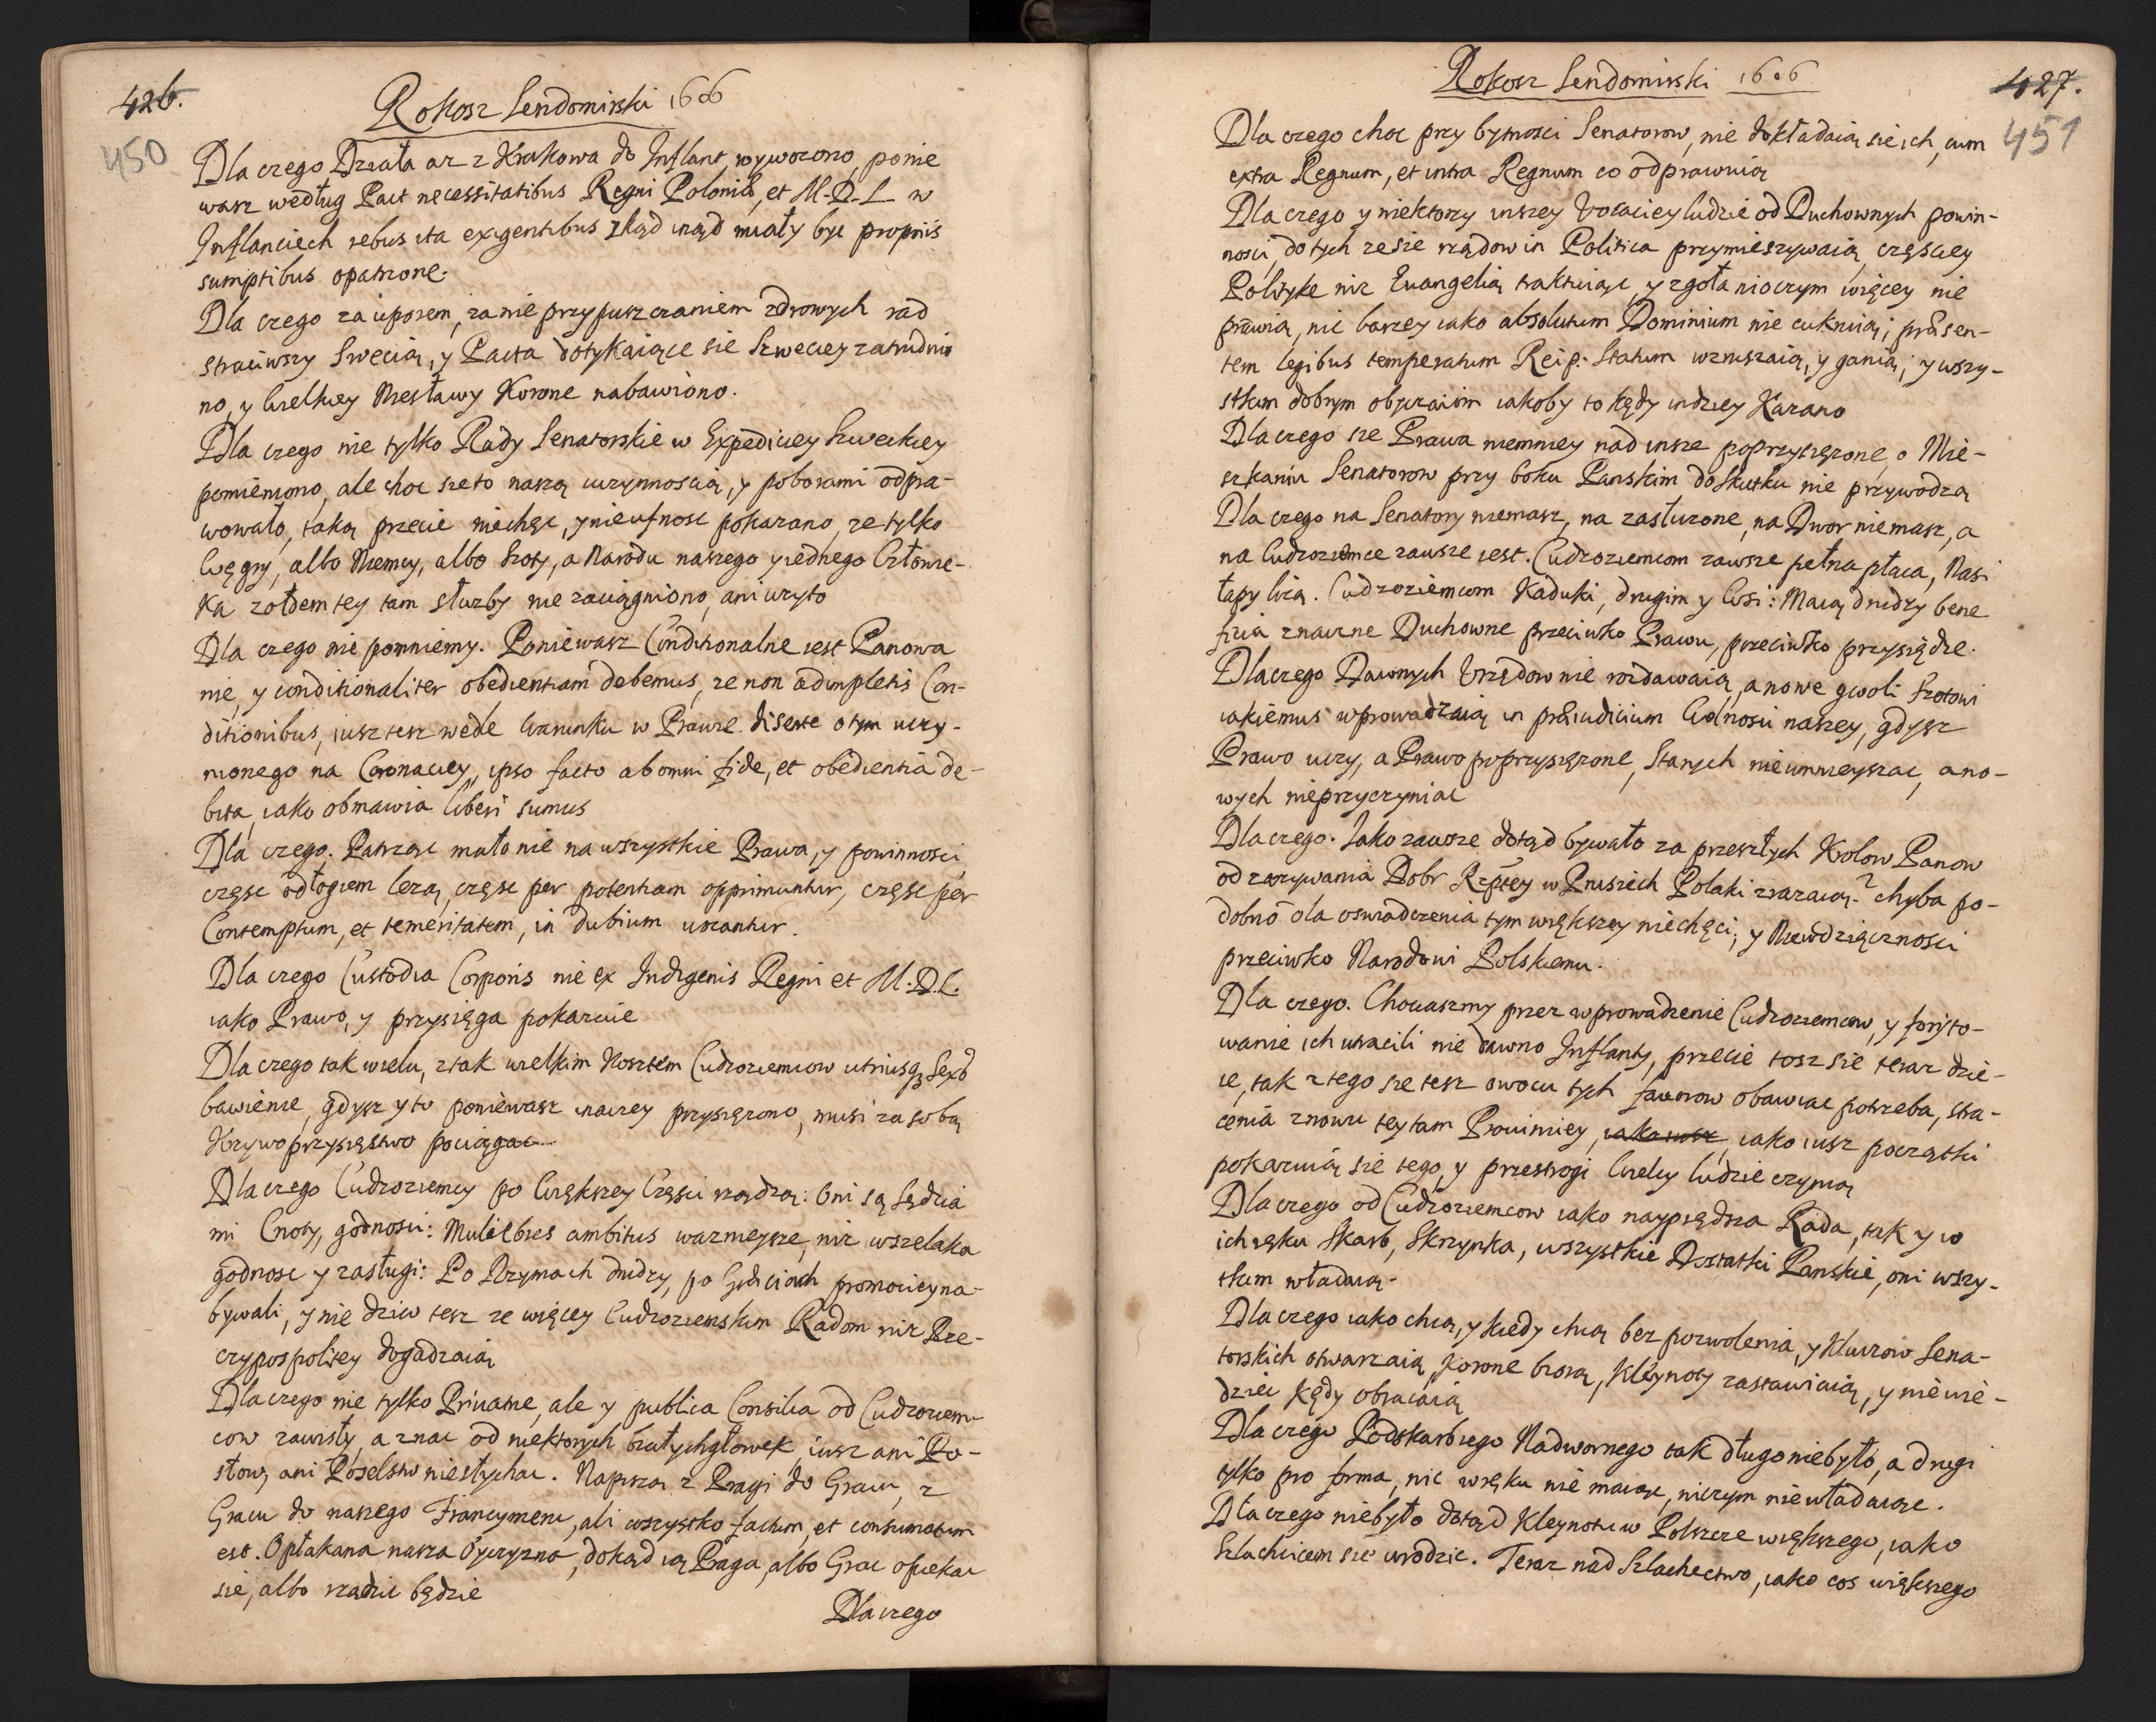 426.
450
Rokosz Sendomirski 1606
Dla czego Działa az z Krakowa do Inflant wywozono, ponie
wasz według Pact necessitatibus Regni Poloniæ, et M.D.L. w
Inflanciech rebus ita exigentibus zkąd inąd miały byc propriis
sumptibus opatrzone.
Dla czego za uporem, za nie przypuszczaniem zdrowych rad
straciwszy Swecią, y Pacta dotykaiące sie Szweciey zatrudnio
no, y wielkiey Niesławy Korone nabawiono.
Dla czego nie tylko Rady Senatorskie w Expediciey Szweckiey
pomieniono, ale choc sie to naszą uczynnoscią, y poborami odpra-
wowało, taką przecie niechęc, y nieufnosc pokazano, ze tylko
Węgry, albo Niemcy, albo Szoty, a Narodu naszego y iednego Człowie-
ka zołdem tey tam słuzby nie zaciągniono, ani uzyto
Dla czego nie pomniemy. Poniewasz Conditionalne iest Panowa
nie, y conditionaliter obedientiam debemus, ze non adimpletis Con-
ditionibus, iusz tesz wedle Warunku w Prawie diserte o tym uczy-
nionego na Coronaciey, ipso facto ab omni fide, et obedientia de-
bita, iako obmawia liberi sumus
Dla czego. Patrząc mało nie na wszystkie Prawa, y powinnosci
częsc odłogiem lezą, częsc per potentiam opprimuntur, częsc per
Contemptum, et temeritatem, in dubium uocantur.
Dla czego Custodia Corporis nie ex Indigenis Regni et M.D.L.
iako Prawo, y przysięga pokazuie
Dla czego tak wielu, z tak wielkim Kosztem Cudzoziemcow utriusq3 Sexus
bawienie, gdysz y to poniewasz inaczey przysięzono, musi za sobą
Krzywoprzysięstwo pociągac
Dla czego Cudzoziemcy po większey Części rządzą: Oni są Sędzia
mi Cnoty, godnosci: Muliebres ambitus waznieysze, niz wszelaka
godnosc y zasługi: Po Rzymach drudzy, po Grdiciach promociey na-
bywali, y nie dziw tesz ze więcey Cudzoziemskim Radom niz Rze-
czypospolitey dogadzaią
Dla czego nie tylko Priuatne, ale y publica Consilia od Cudzoziem-
cow zawisły, a znac od niektorych białychgłowek, iusz ani Po-
słow, ani Poselstw niesłychac. Napiszą z Pragi do Gracu, z
Gracu do naszego Francymeru, ali wszystko factum, et consumatum
est. Opłakana nasza Oyczyzno, dokąd ią Praga, albo Grac opiekac
sie, albo rządzic będzie
Dla czego
427.
451
Rokosz Sendomirski 1606
Dla czego choc przy bytnosci Senatorow, nie dokładaią sie ich, cum
extra Regnum, et intra Regnum co odprawuią
Dla czego y niektorzy inszey Vocaciey ludzie od Duchownych powin-
nosci, do tych ze sie rządow in Politica przymieszywaią, częsciey
Polityke niz Euangelią traktuiąc, y zgoła nioczym więcey nie
prawią, nic barzey iako absolutum Dominium nie cukruią; præsen-
tem legibus temperatum Reip: Statum wzruszaią, y ganią; y wszy-
stkim dobrym obyczaiom iakoby to kędy indziey Karano
Dla czego sie Prawa niemniey nad insze poprzysięzone, o Mie-
szkaniu Senatorow przy boku Panskim do skutku nie przywodzą
Dla czego na Senatory niemasz, na zasłuzone, na Dwor niemasz, a
na Cudzoziemce zawsze iest. Cudzoziemcom zawsze pełna płaca, Nasi
łapy liżą. Cudzoziemcom Kaduki, drugim y Wsi: Maią drudzy bene
ficia znaczne Duchowne przeciwko Prawu, przeciwko przysiędze.
Dla czego Dawnych Vrzędow nie rozdawaią, a nowe gwoli Szotowi
iakiemus wprowadzaią in præiudicium Wolnosci naszey, gdysz
Prawo uczy, a Prawo poprzysięzone, Starych nieumnieyszac, a no-
wych nieprzyczyniac
Dla czego. Iako zawsze dotąd bywało za przeszłych Krolow Panow
od zazywania Dobr Rzptey w Prusiech Polaki zrazaią? chyba po-
dobno dla oswiadczenia tym większey niechęci, y Niewdzięcznosci
przeciwko Narodowi Polskiemu.
Dla czego. Chociaszmy przez wprowadzenie Cudzoziemcow, y foryto-
wanie ich utracili nie dawno Inflanty, przecie tosz sie teraz dzie-
ie, tak z tego sie tesz owocu tych faworow obawiac potrzeba, stra-
cenia znowu tey tam Prouinciey, iako iusz, iako iusz początki
pokazuią sie tego, y przestrogi Wielcy ludzie czynią
Dla czego od Cudzoziemcow iako nayprędsza Rada, tak y w
ich ręku Skarb, Skrzynka, wszystkie Dostatki Panskie, oni wszy-
tkim władaią.
Dla czego iako chcą, y kiedy chcą bez pozwolenia, y Kluczow Sena-
torskich otwarzaią, Korone biorą, Kleynoty zastawiaią, y nie wie-
dziec kędy obracaią
Dla czego Podskarbiego Nadwornego tak długo niebyło, a drugi
tylko pro forma, nic w ręku nie maiąc, niczym niewładaiąc.
Dla czego niebyło dotąd Kleynotu w Polszcze większego, iako
Szlachcicem sie urodzic. Teraz nad Szlachectwo, iako cos większego